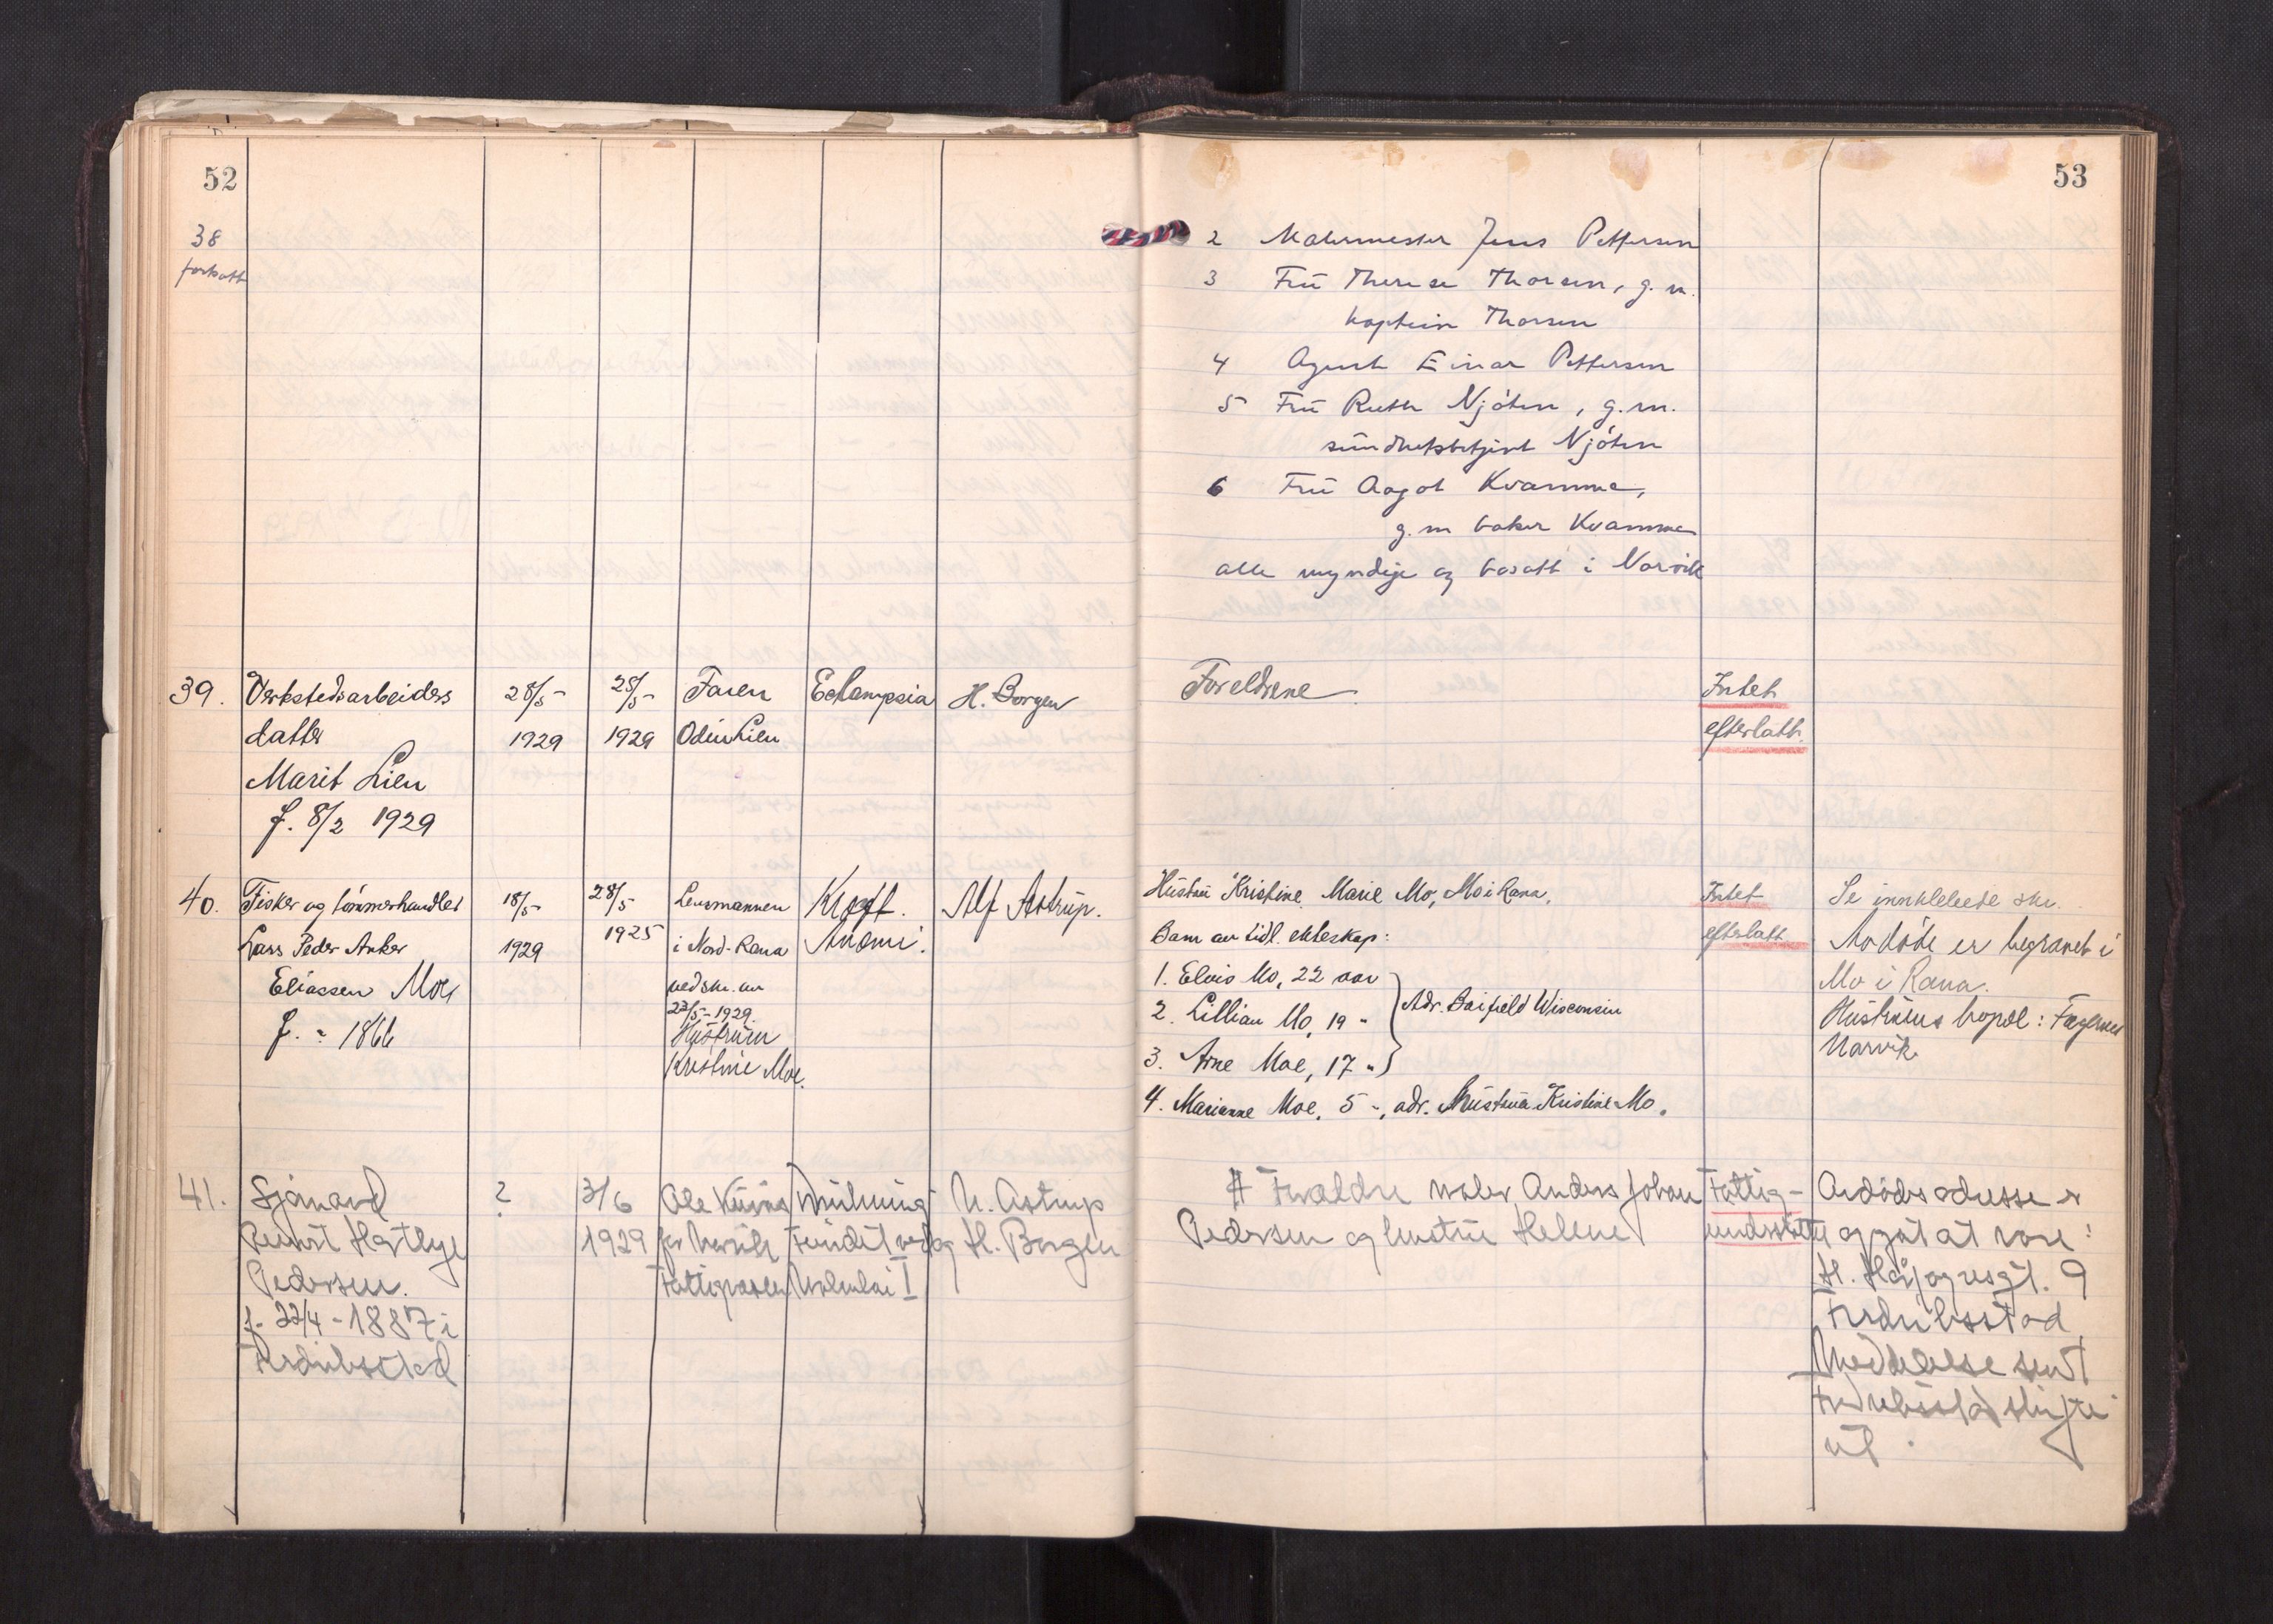 52
38
forts att
39. Verkstedsarbeiders
datter
Marit Lien
f. 8/2 1929
28/5-
1929
28/5-
1929
Faren
Odin Lien
Eclampsia
H. Borgen
40. Fisker og tömmerhandler
Lars Peder Anker
Eliassen Moe
f. - 1866
18/5-
1929
28/5
1925
Lensmannen
i Nord-Rana
ved skr. av
22/5-1929.
Hustruen
Kristine Moe.
Kræft.
Anemi.
Alf Astrup.
41. Sjömand
Hartvig
Pedersen.
f. 22/4-1887 i
Fredriksstad
?
3/6
1929
Ole
for Narvik
Fattigvæsen
Drukning
Fundet ved
Malmkai I
N. Astrup
og H. Borgen
53
2 Malermester Jens Pettersen
3 Frü Therese Thorsen, g. m.
kaptein Thorsen
4 Agent Einar Pettersen
5 Frü Ruth Njöten, g. m.
sündhetsbetjent Njöten
6 Frü Aagot Kvamme,
g. m baker Kvamme
alle myndige og bosatt i Narvik
Foreldrene
Intet
efterlatt.
Hüstrü Kristine Marie Mo, Mo i Rana.
Barn av tidl. ekteskap:
1. Elvis Mo, 22 aar
2. Lillian Mo, 19 "
3. Arne Moe, 17 "
Adr. Baifield Wisconsin
4. Marianne Moe, 5 -, adr. Hüstrüa Kristine Mo.
Intet
efterlatt
Se innklebede skr.
Avdöde er begravet i
Mo i Rana.
Hüstrüens bopæl: Fagernes
Narvik.
Forældre maler Anders Johan
Pedersen og hustrü Helene
Fattig-
understötte
Avdödes adresse er
opgit at være:
gt. 9
Fredriksstad
Meddelelse sent
Fredriksstad skifte
ret.